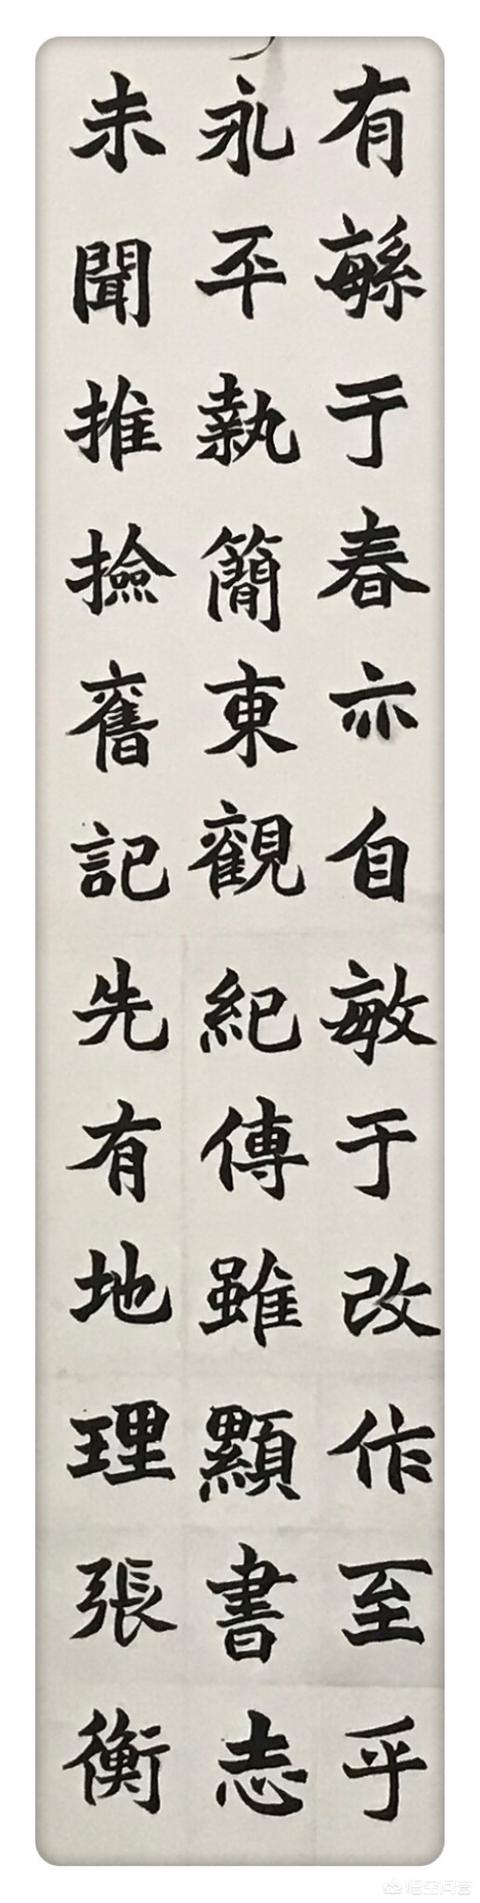 有緐于春亦自敏于改作至乎
永平執簡東觀紀傳雖顯書志
未聞推撿舊記先有地理張衡
悟空问答